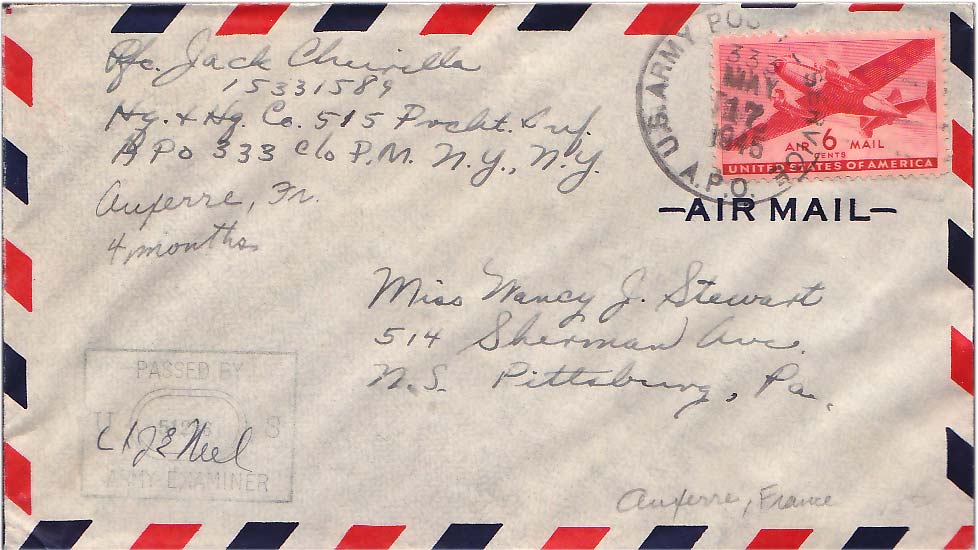 Pfc. Jack
15331589
Hq. & Hq. Co. 515 Procht. Inf.
APO 333 c/o P.M. N.Y., N.Y.
Auxerre, Fr.
4 months
U.S. ARMY POSTAL SERVICE A.P.O.
333
MAY
17
1945
AIR 6 MAIL
CENTS
UNITED STATES OF AMERICA
—AIR MAIL—
Miss Nancy J. Stewart
514 Sherman Ave.
N.S. Pittsburg, Pa.
PASSED BY
U S
ARMY EXAMINER
Auxerre, France